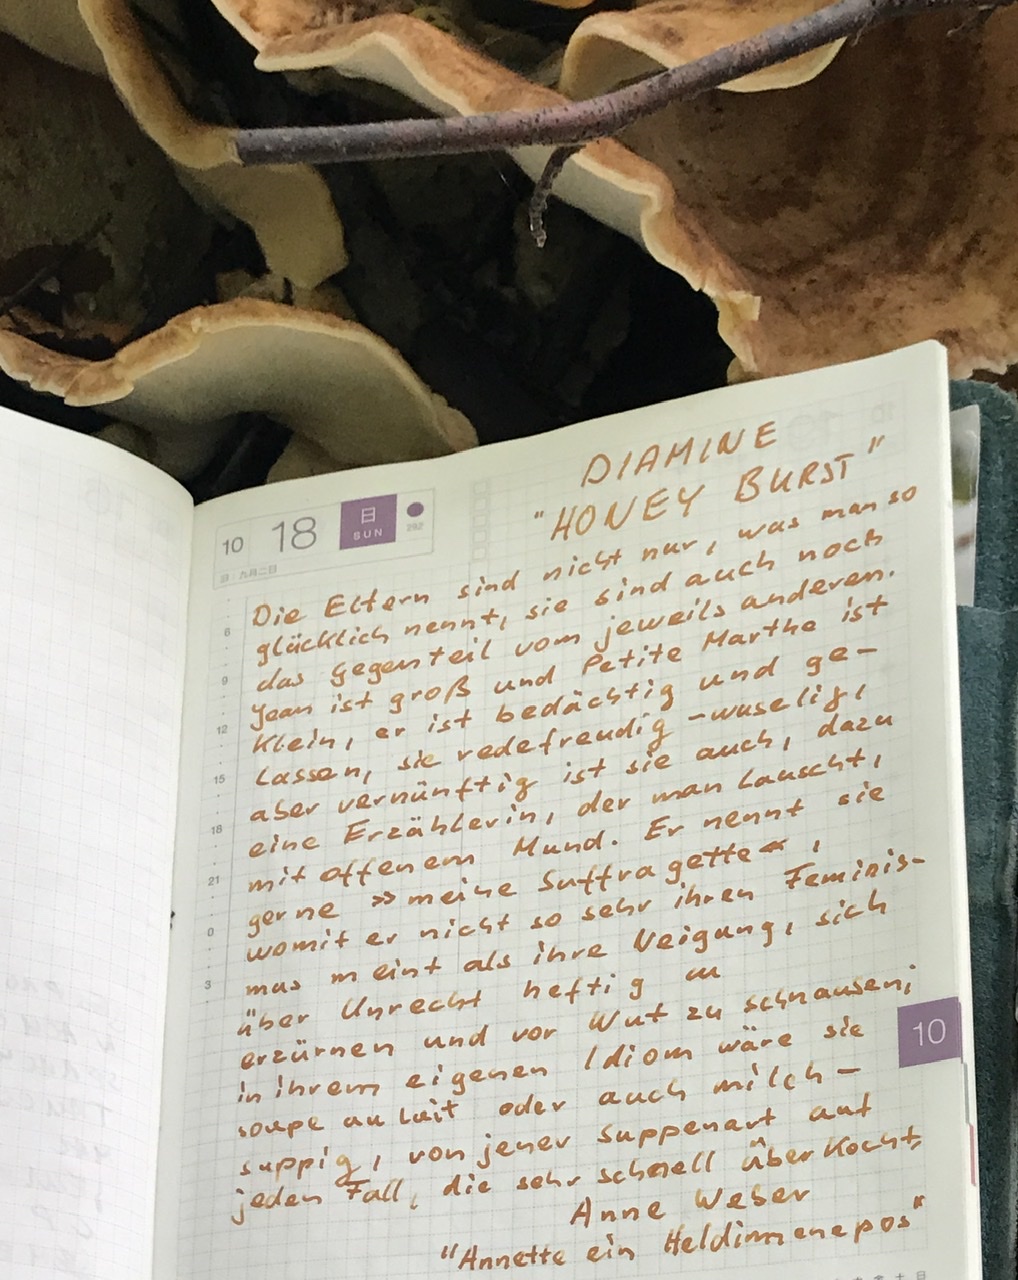 DIAMINE
"HONEY BURST"
10 18 日 SUN
292
日:九月二日
Die Eltern sind nicht nur, was man so
glücklich nennt, sie sind auch noch
das Gegenteil vom jeweils anderen.
Jean ist groß und Petite Marthe ist
klein, er ist bedächtig und ge-
lassen, sie redefreudig-wuselig,
aber vernünftig ist sie auch, dazu
eine Erzählerin, der man lauscht,
mit offenem Mund. Er nennt sie
gerne »meine Suffragette«,
womit er nicht so sehr ihren Feminis-
mus meint als ihre Neigung, sich
über Unrecht heftig zu
erzürnen und vor Wut zu schnausen;
in ihrem eigenen Idiom wäre sie
soupe au lait oder auch milch-
suppig, von jener Suppenart auf
jeden Fall, die sehr schnell überkocht,
Anne Weber
"Annette ein Heldinnenepos"
6
9
12
15
18
21
0
3
10